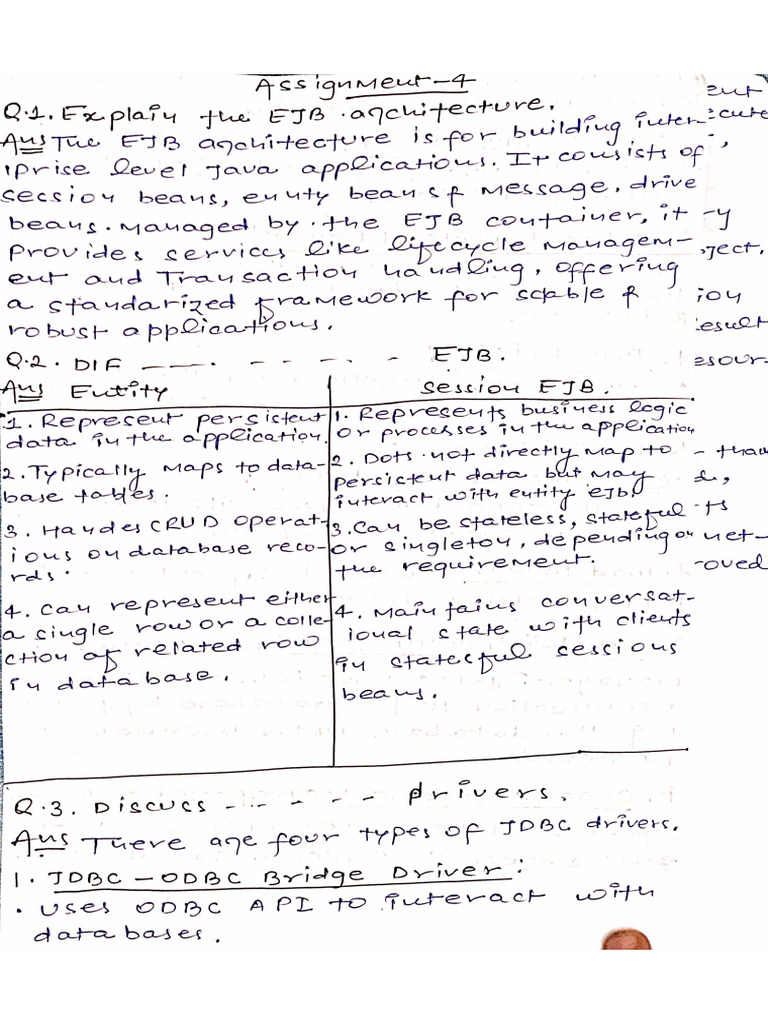 Assignment-4
Q.1. Explain the EJB architecture.
Ans The EJB architecture is for building inter
prise level Java applications. It consists of
secsion beans, enuty beans & message, drive
beans. Managed by the EJB container, it
Provides services like lifecycle managem-
ent and Transaction handling, offering
a standarized framework for scalable &
robust applications.
Q.2. DIF ---. - - - . - EJB.
Ans Entity
Session EJB.
1. Represent persistent
data in the application.
2. Typically maps to data-
base tables.
3. Handes CRUD operat-
ions on database reco-
rds.
4. Can represent either
a single row or a colle-
ction of related row
in database.
1. Represents business logic
or processes in the application
2. Dots not directly map to
persistent data but may
interact with entity EJB
3. Can be stateless, stateful
or singleton, depending on
the requirement.
4. Maintains conversat-
ional state with clients
in statesful sessions
beans.
Q.3. Discucs - - - - - - drivers.
Ans There are four types of JDBC drivers.
1. JDBC - ODBC Bridge Driver:
• Uses ODBC API to interact with
databases.
ent
ecute
-y
oject.
ion
esult
esour-
- than
ts
net-
roved